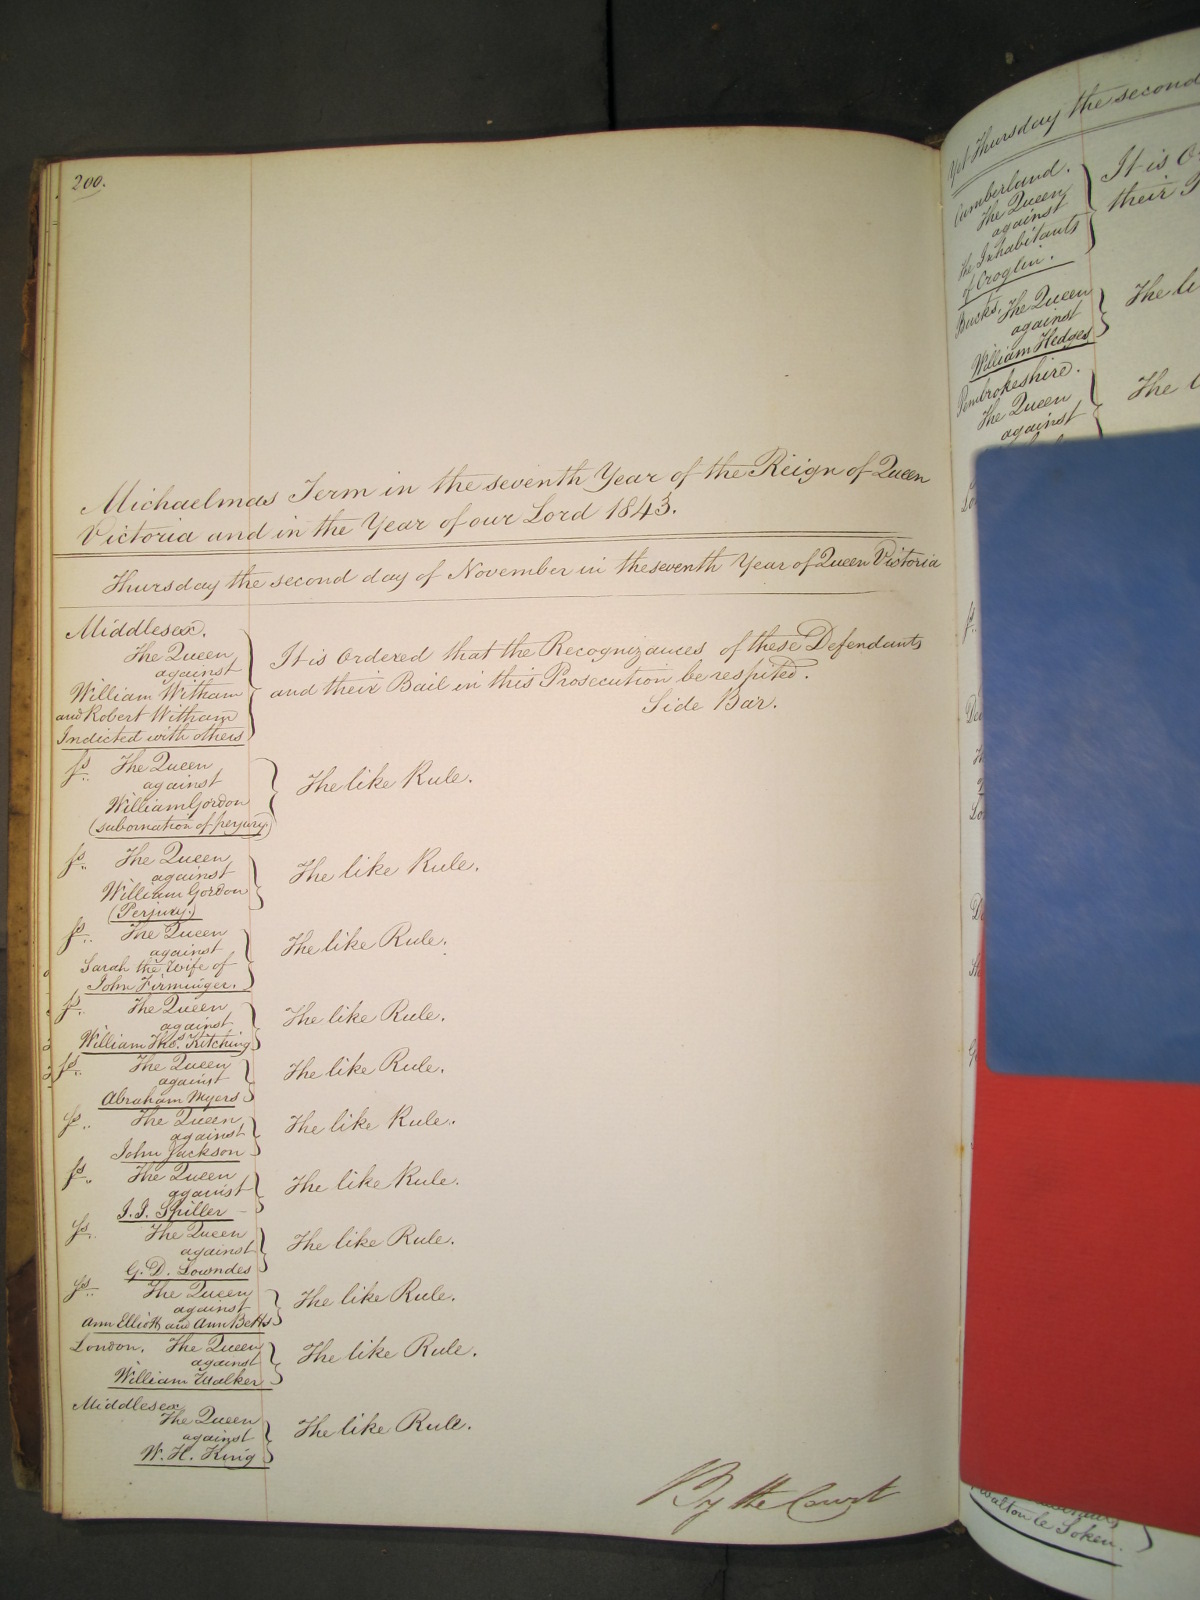 200.
Michaelmas Term in the seventh Year of the Reign of Queen
Victoria and in the Year of our Lord 1843.
Thursday the second day of November in the seventh Year of Queen Victoria
Middlesex.
The Queen
against
William Witham
and Robert Witham
Indicted with others
It is Ordered that the Recognizances of these Defendants
and their Bail in this Prosecution be respited.
Side Bar.
ſs. The Queen
against
William Gordon
(subornation of perjury)
The like Rule.
ſs. The Queen
against
William Gordon
(Perjury.)
The like Rule.
ſs. The Queen
against
Sarah the Wife of
John Firminger.
The like Rule.
ſs. The Queen
against
William Thos. Kitching
The like Rule.
ſs. The Queen
against
Abraham Myers
The like Rule.
ſs. The Queen
against
John Jackson
The like Rule.
ſs. The Queen
against
J. J. Spiller
The like Rule.
ſs. The Queen
against
G. D. Lowndes
The like Rule.
ſs. The Queen
against
Ann Elliott and Ann Betts
The like Rule.
London. The Queen
against
William Walker
The like Rule.
Middlesex
The Queen
against
W. H. King
The like Rule.
By the Court
Yet Thursday the second
Cumberland.
The Queen
against
the Inhabitants
of Croglin.
It is
their
Bucks. The Queen
against
William Hedges
The
Pembrokeshire.
The Queen
against
The
Walton le Soken.